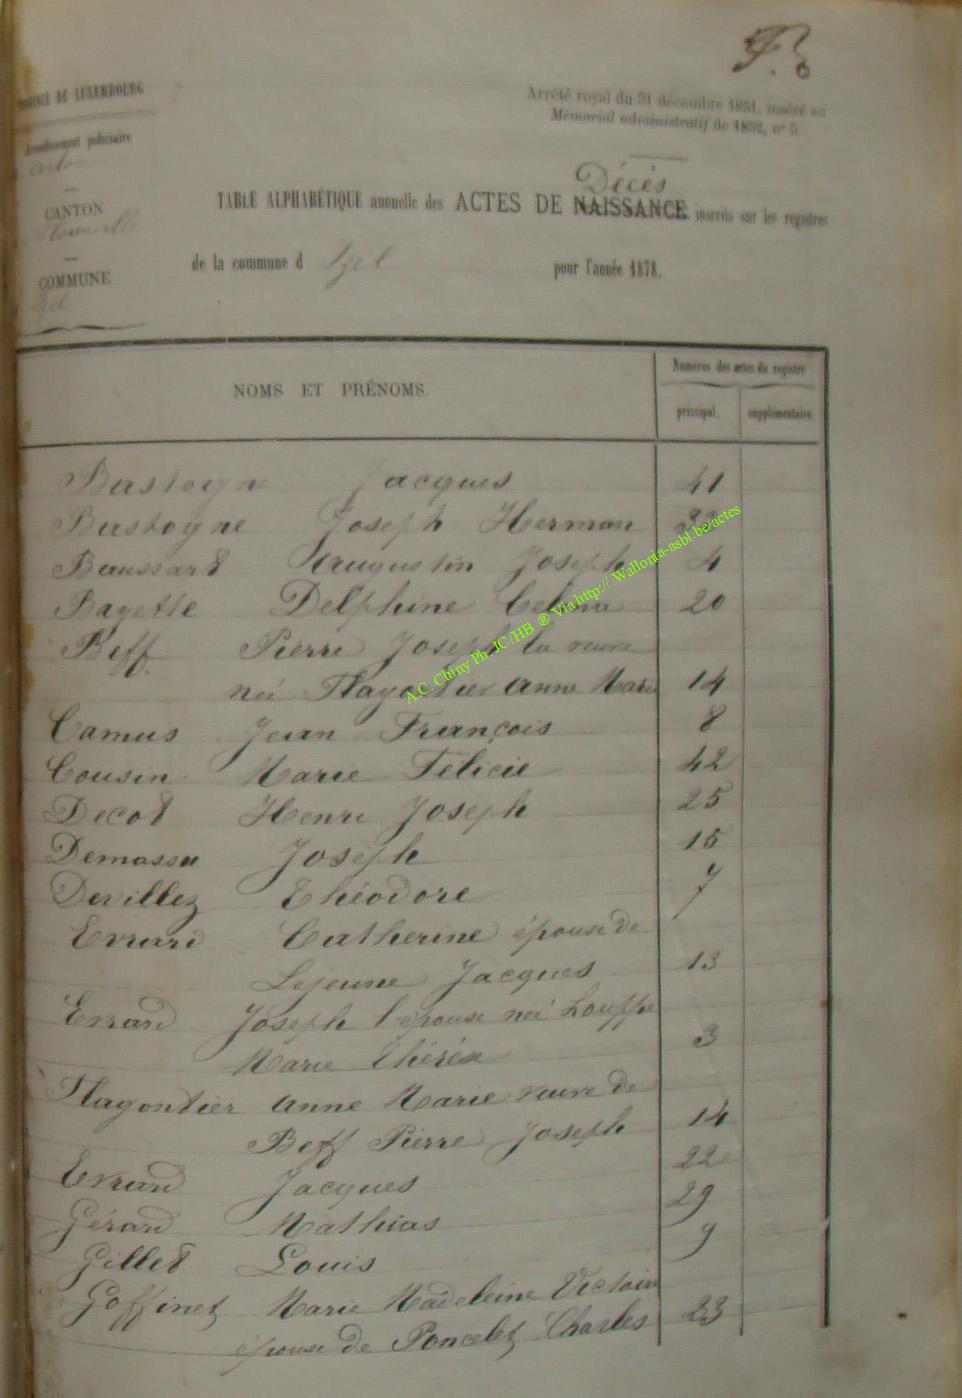 PROVINCE DE LUXEMBOURG
Arrondissement judiciaire
Arlon
CANTON
Florenville
COMMUNE
Izel
Arrêté royal du 31 décembre 1851, inséré au
Mémorial administratif de 1852, n° 5.
Décès
TABLE ALPHABÉTIQUE annuelle des ACTES DE NAISSANCE inscrits sur les registres
de la commune d Izel pour l'année 1878.
NOMS ET PRÉNOMS.
Numéros des actes du registre
principal.
supplémentaire.
Bastogne Jacques 41
Bastogne Joseph Herman
Baussart Augustin Joseph 4
Bayette Delphine Celina 20
Beff Pierre Joseph la veuve
née Flagontier Anne Marie 14
Camus Jean François 8
Cousin Marie Félicie 42
Decot Henri Joseph 25
DemasSu Joseph 15
Devillez Théodore 7
Evrard Catherine épouse de
Lejeune Jacques 13
Evrard Joseph l'épouse née Louppe
Marie Thérèse 3
Flagontier Anne Marie veuve de
Beff Pierre Joseph 14
Evrard Jacques 22
Gérard Mathias 29
Gillet Louis 9
Goffinet Marie Madeleine Victoire
épouse de Poncelet Charles 23
A.C. Chiny Ph. JC /HB ® Via http:// Wallonia-asbl.be/actes